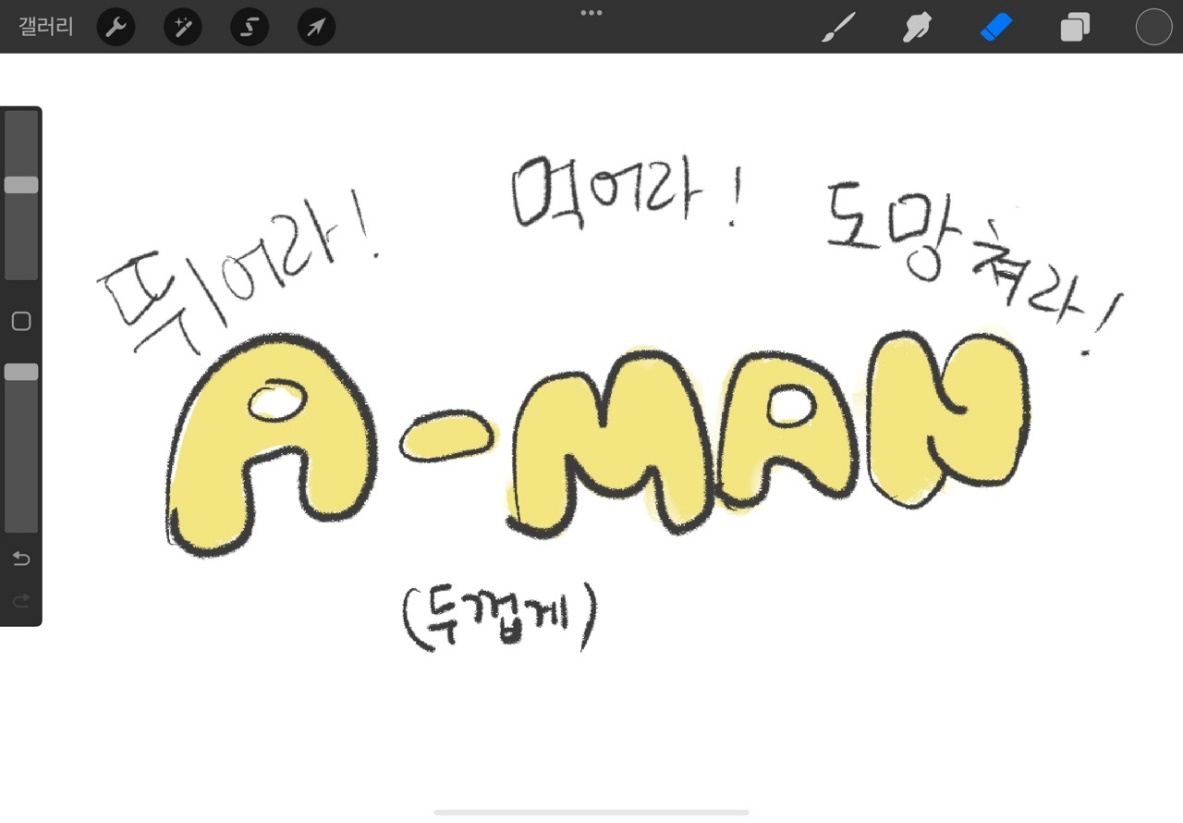 갤러리
뛰어라! 먹어라! 도망쳐라!
A-MAN
(두껍게)